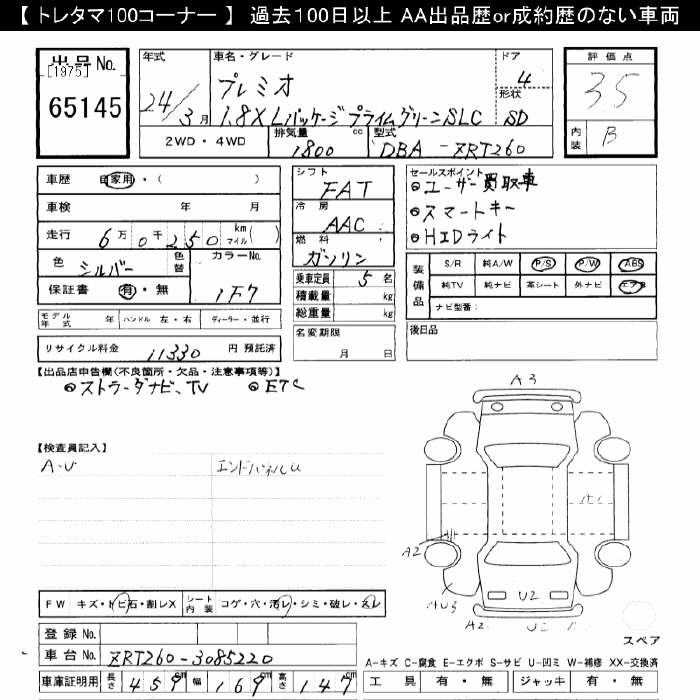 【トレタマ100コーナー】 過去100日以上 AA出品歴or成約歴のない車両
出品No. [1975]
65145
年式 24/3月
車名・グレード プレミオ
1.8X Lパッケージプライムグリーン SLC
ドア 4
形状 SD
評価点 35
内装 B
2WD・4WD
排気量 1800 cc
型式 DBA-ZRT260
車歴 自家用・( )
車検 年 月
走行 6万0千250 km マイル( )
色 シルバー 色替 カラーNo. 1F7
保証書 有・無
モデル年式 年 ハンドル 左・右 ディーラー・並行
リサイクル料金 11330 円 預託済
シフト FAT
冷房 AAC
燃料 ガソリン
乗車定員 5 名
積載量 kg
総重量 kg
名変期限 月 日
セールスポイント
◎ユーザー買取車
◎スマートキー
◎HIDライト
装備品 S/R 純A/W P/S P/W ABS
純TV 純ナビ 革シート 外ナビ エアB
ナビ型番:
後日品
【出品店申告欄(不良箇所・欠品・注意事項等)】
◎ストラーダナビ、TV ◎ETC
【検査員記入】
A-U エンドパネルU
A3
A2
AU3
U2
A2
FW キズ・トビ石・割レX シート内装 コゲ・穴・汚レ・シミ・破レ・スレ
登録No.
車台No. ZRT260-3085220
車庫証明用 長さ 459 幅 169 高さ 147
スペア
A-キズ C-腐食 E-エクボ S-サビ U-凹ミ W-補修 XX-交換済
工具 有・無 ジャッキ 有・無